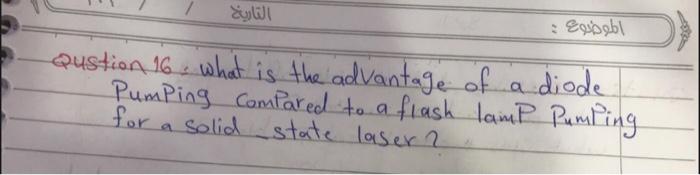 الموضوع :
التاريخ
Qustion 16 : what is the advantage of a diode
PumPing comPared to a flash lamP PumPing
for a solid _ state laser ?